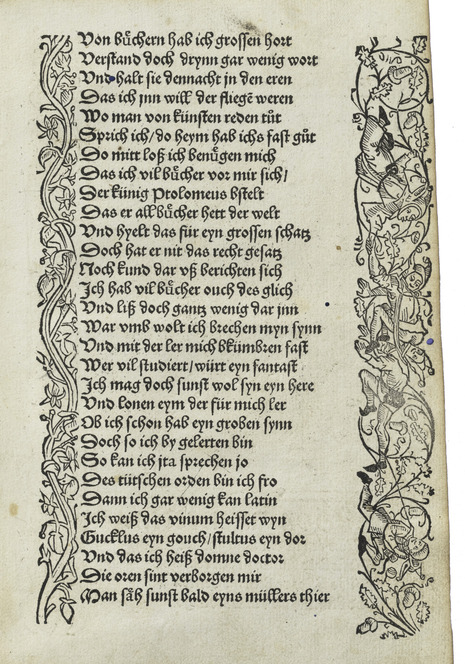 Von bůchern hab ich grossen hort
Verstand doch drynn gar wenig wort
Vnd halt sie dennacht jn den eren
Das ich jnn will der fliegẽ weren
Wo man von künsten reden tůt
Sprich ich / do heym hab ichs fast gůt
Do mitt loß ich benůgen mich
Das ich vil bůcher vor mir sich /
Der künig Ptolomeus bstelt
Das er all bůcher hett der welt
Vnd hyelt das für eyn grossen schatz
Doch hat er nit das recht gesatz
Noch kund dar vß berichten sich
Ich hab vil bůcher ouch des glich
Vnd liß doch gantz wenig dar jnn
War vmb wolt ich brechen myn synn
Vnd mit der ler mich bkümbren fast
Wer vil studiert / würt eyn fantast
Ich mag doch sunst wol syn eyn here
Vnd lonen eym der für mich ler
Ob ich schon hab eyn groben synn
Doch so ich by gelerten bin
So kan ich jta sprechen jo
Des tütschen orden bin ich fro
Dann ich gar wenig kan latin
Ich weiß das vinum heisset wyn
Gucklus eyn gouch / stultus eyn dor
Vnd das ich heiß domne doctor
Die oren sint verborgen mir
Man sæh sunst bald eyns müllers thier